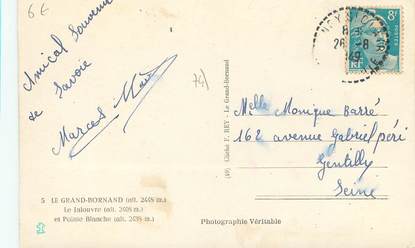 6€
Amical Souvenir
de Savoie
Marcel
(74)
8F
POSTES
RF
26 -8
Melle Monique Barré
162 avenue Gabriel péri
Gentilly
Seine
(49) Cliché F. REY - Le Grand-Bornand
5 LE GRAND-BORNAND (alt. 2438 m.)
Le Jalouvre (alt. 2408 m.)
et Pointe Blanche (alt. 2438 m.)
Photographie Véritable